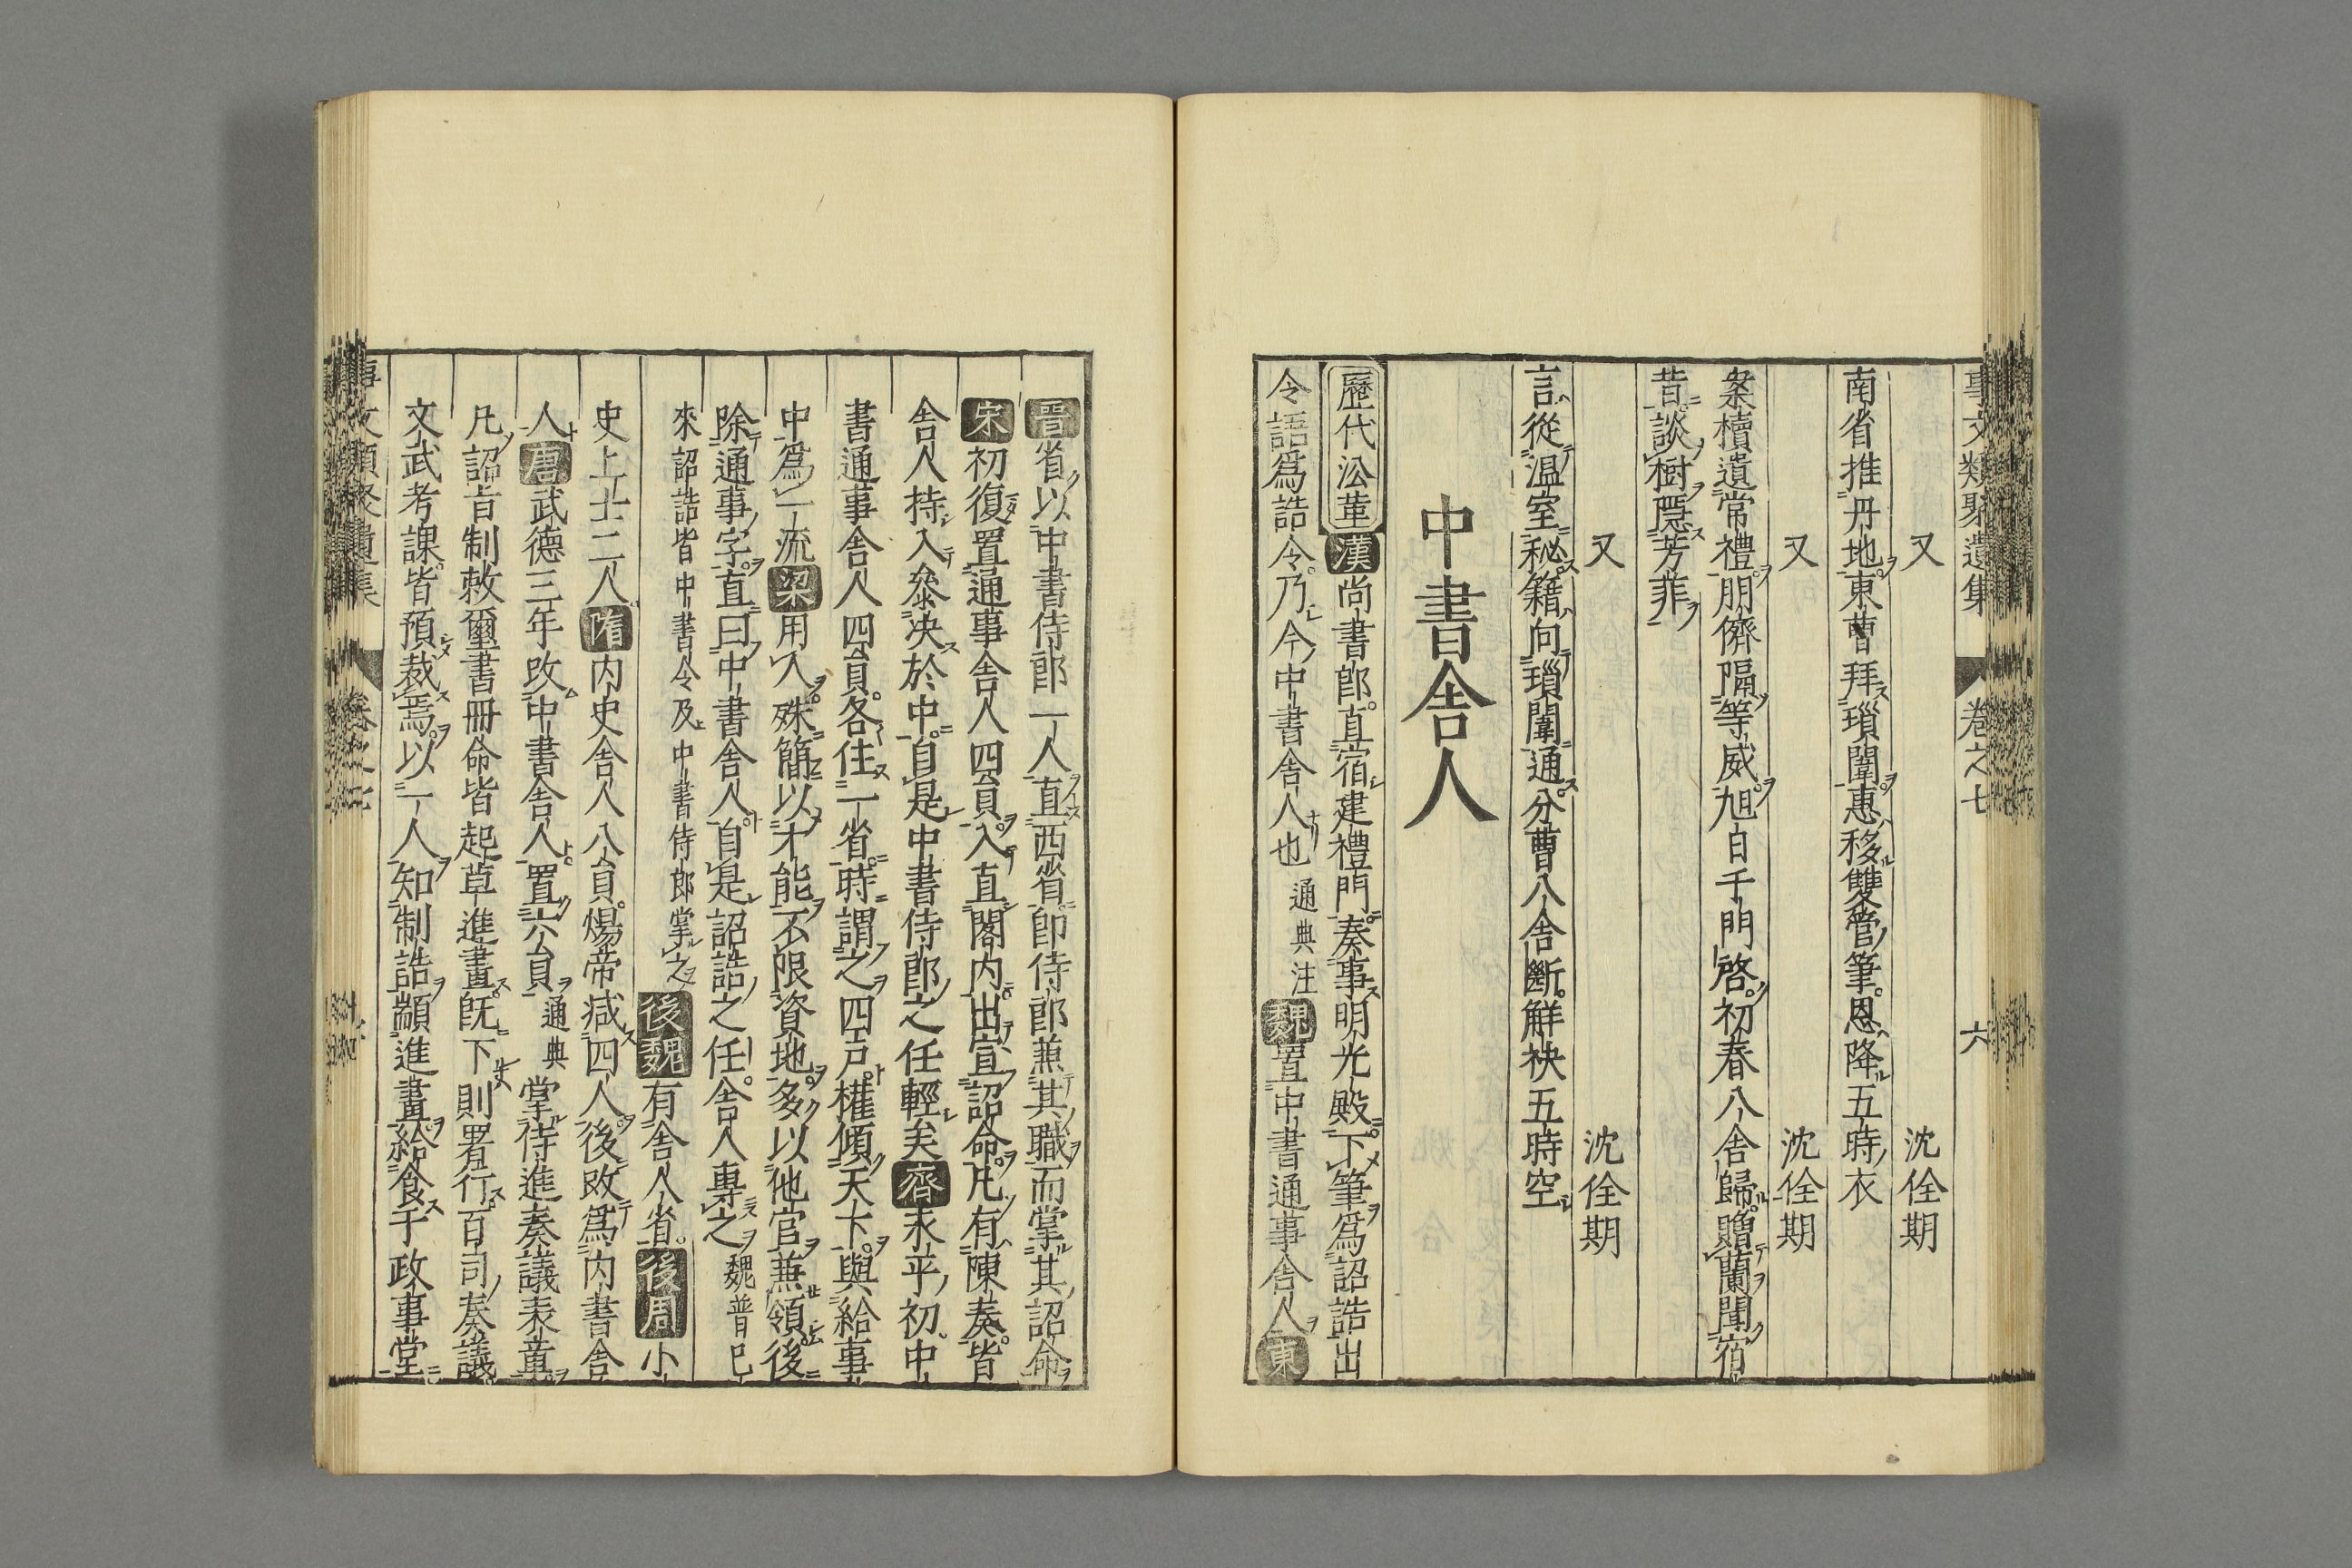 事文類聚遺集 卷之七 六
又 沈佺期
南省推丹地東曹拜瑣闈惠移雙管筆恩降五時衣
又 沈佺期
案牘遺常禮朋儕隔等威旭日千門啓初春八舍歸贈蘭聞宿
昔談樹隱芳菲
又 沈佺期
言從温室秘籍向瑣闈通分曹八舍斷解袂五時空
中書舍人
歷代沿革漢尚書郎直宿建禮門奏事明光殿下筆爲詔誥出
令語爲誥令乃今中書舍人也通典注魏置中書通事舍人東
晉省以中書侍郎一人直西省即侍郎兼其職而掌其詔命
宋初復置通事舍人四員入直閣内出宣詔命凡有陳奏皆
舍人持入參决於中自是中書侍郎之任輕矣齊永平初中
書通事舍人四員各住一省時謂之四戸權傾天下與給事
中爲一流梁用人殊簡以才能不限資地多以他官兼領後
除通事字直曰中書舍人自是詔誥之任舍人專之魏晉已
來詔誥皆中書令及中書侍郎掌之後魏有舍人省後周小
史上士二人隋内史舍人八員煬帝减四人後改爲内書舍
人唐武德三年改中書舍人置六員通典掌侍進奏議表章
凡詔旨制敕璽書冊命皆起草進畫既下則署行百司奏議
文武考課皆預裁焉以一人知制誥顓進畫給食于政事堂
事文類聚遺集 卷之七